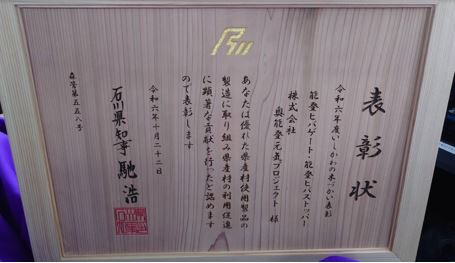 表彰状
令和六年度いしかわの木づかい表彰
能登ヒバゲート・能登ヒバストッパー
株式会社
奥能登元気プロジェクト 様
あなたは優れた県産材使用製品の
製造に取り組み県産材の利用促進
に顕著な貢献を行ったと認めます
ので表彰します
令和六年十月二十二日
石川県知事 馳 浩
森管第五五八号